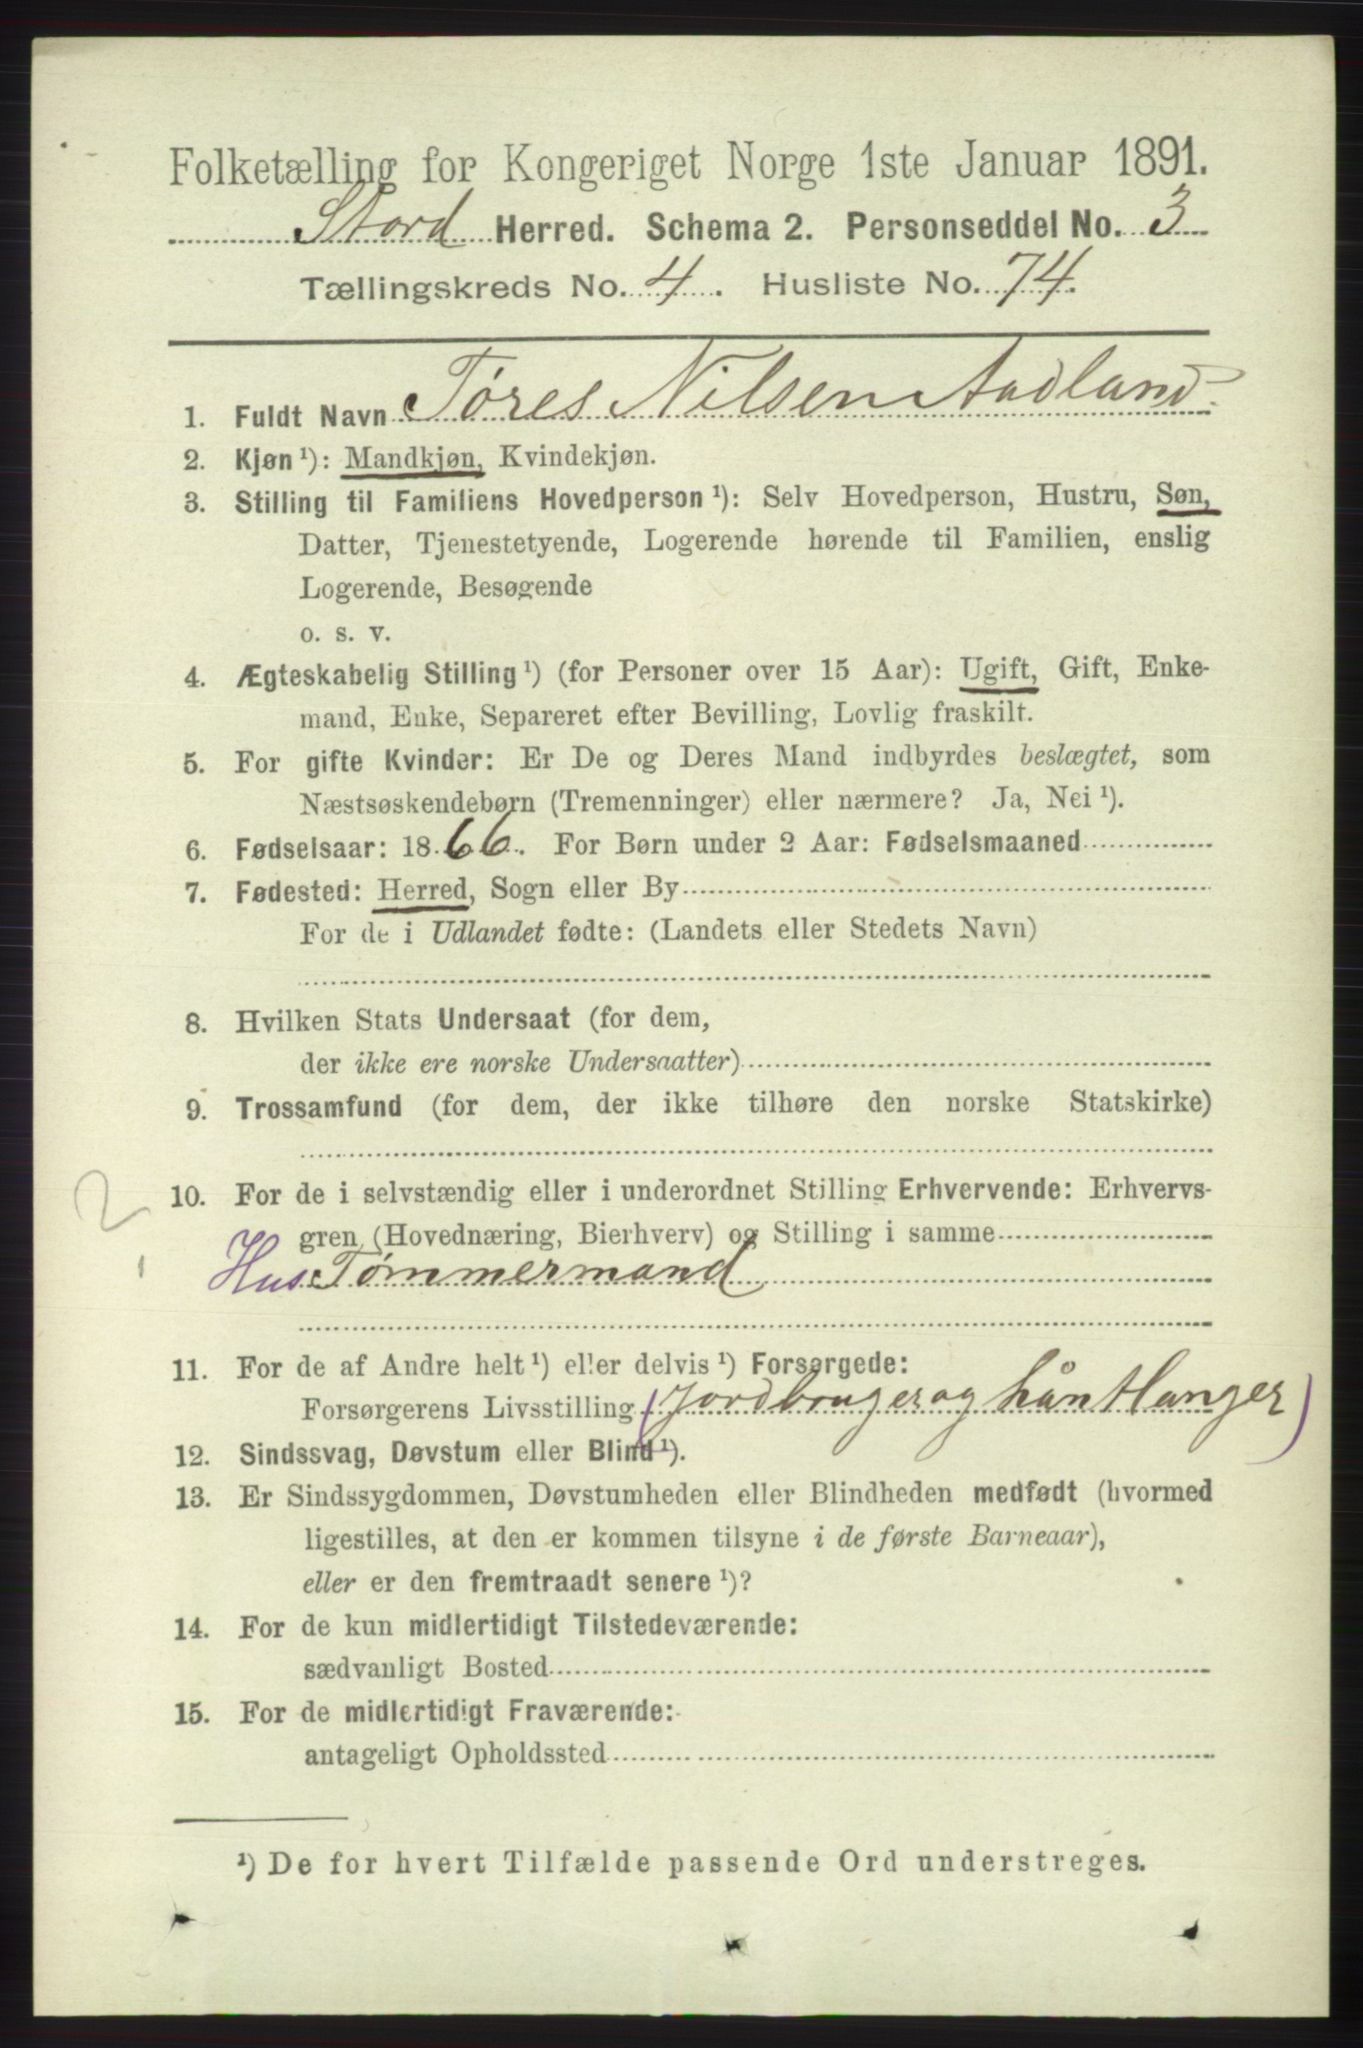 Folketælling for Kongeriget Norge 1ste Januar 1891.
Stord Herred. Schema 2. Personseddel No. 3
Tællingskreds No. 4. Husliste No. 74.
1. Fuldt Navn Tøres Nilsen Aadland
2. Kjøn ¹): Mandkjøn, Kvindekjøn.
3. Stilling til Familiens Hovedperson ¹): Selv Hovedperson, Hustru, Søn,
Datter, Tjenestetyende, Logerende hørende til Familien, enslig
Logerende, Besøgende
o. s. v.
4. Ægteskabelig Stilling ¹) (for Personer over 15 Aar): Ugift, Gift, Enke-
mand, Enke, Separeret efter Bevilling, Lovlig fraskilt.
5. For gifte Kvinder: Er De og Deres Mand indbyrdes beslægtet, som
Næstsøskendebørn (Tremenninger) eller nærmere? Ja, Nei ¹).
6. Fødselsaar: 1866. For Børn under 2 Aar: Fødselsmaaned
7. Fødested: Herred, Sogn eller By
For de i Udlandet fødte: (Landets eller Stedets Navn)
8. Hvilken Stats Undersaat (for dem,
der ikke ere norske Undersaatter)
9. Trossamfund (for dem, der ikke tilhøre den norske Statskirke)
2
10. For de i selvstændig eller i underordnet Stilling Erhvervende: Erhvervs-
gren (Hovednæring, Bierhverv) og Stilling i samme
Hus: Tømmermand
11. For de af Andre helt ¹) eller delvis ¹) Forsørgede:
Forsørgerens Livsstilling (Jordbruger og
12. Sindssvag, Døvstum eller Blind ¹).
13. Er Sindssygdommen, Døvstumheden eller Blindheden medfødt (hvormed
ligestilles, at den er kommen tilsyne i de første Barneaar),
eller er den fremtraadt senere ¹)?
14. For de kun midlertidigt Tilstedeværende:
sædvanligt Bosted
15. For de midlertidigt Fraværende:
antageligt Opholdssted
¹) De for hvert Tilfælde passende Ord understreges.